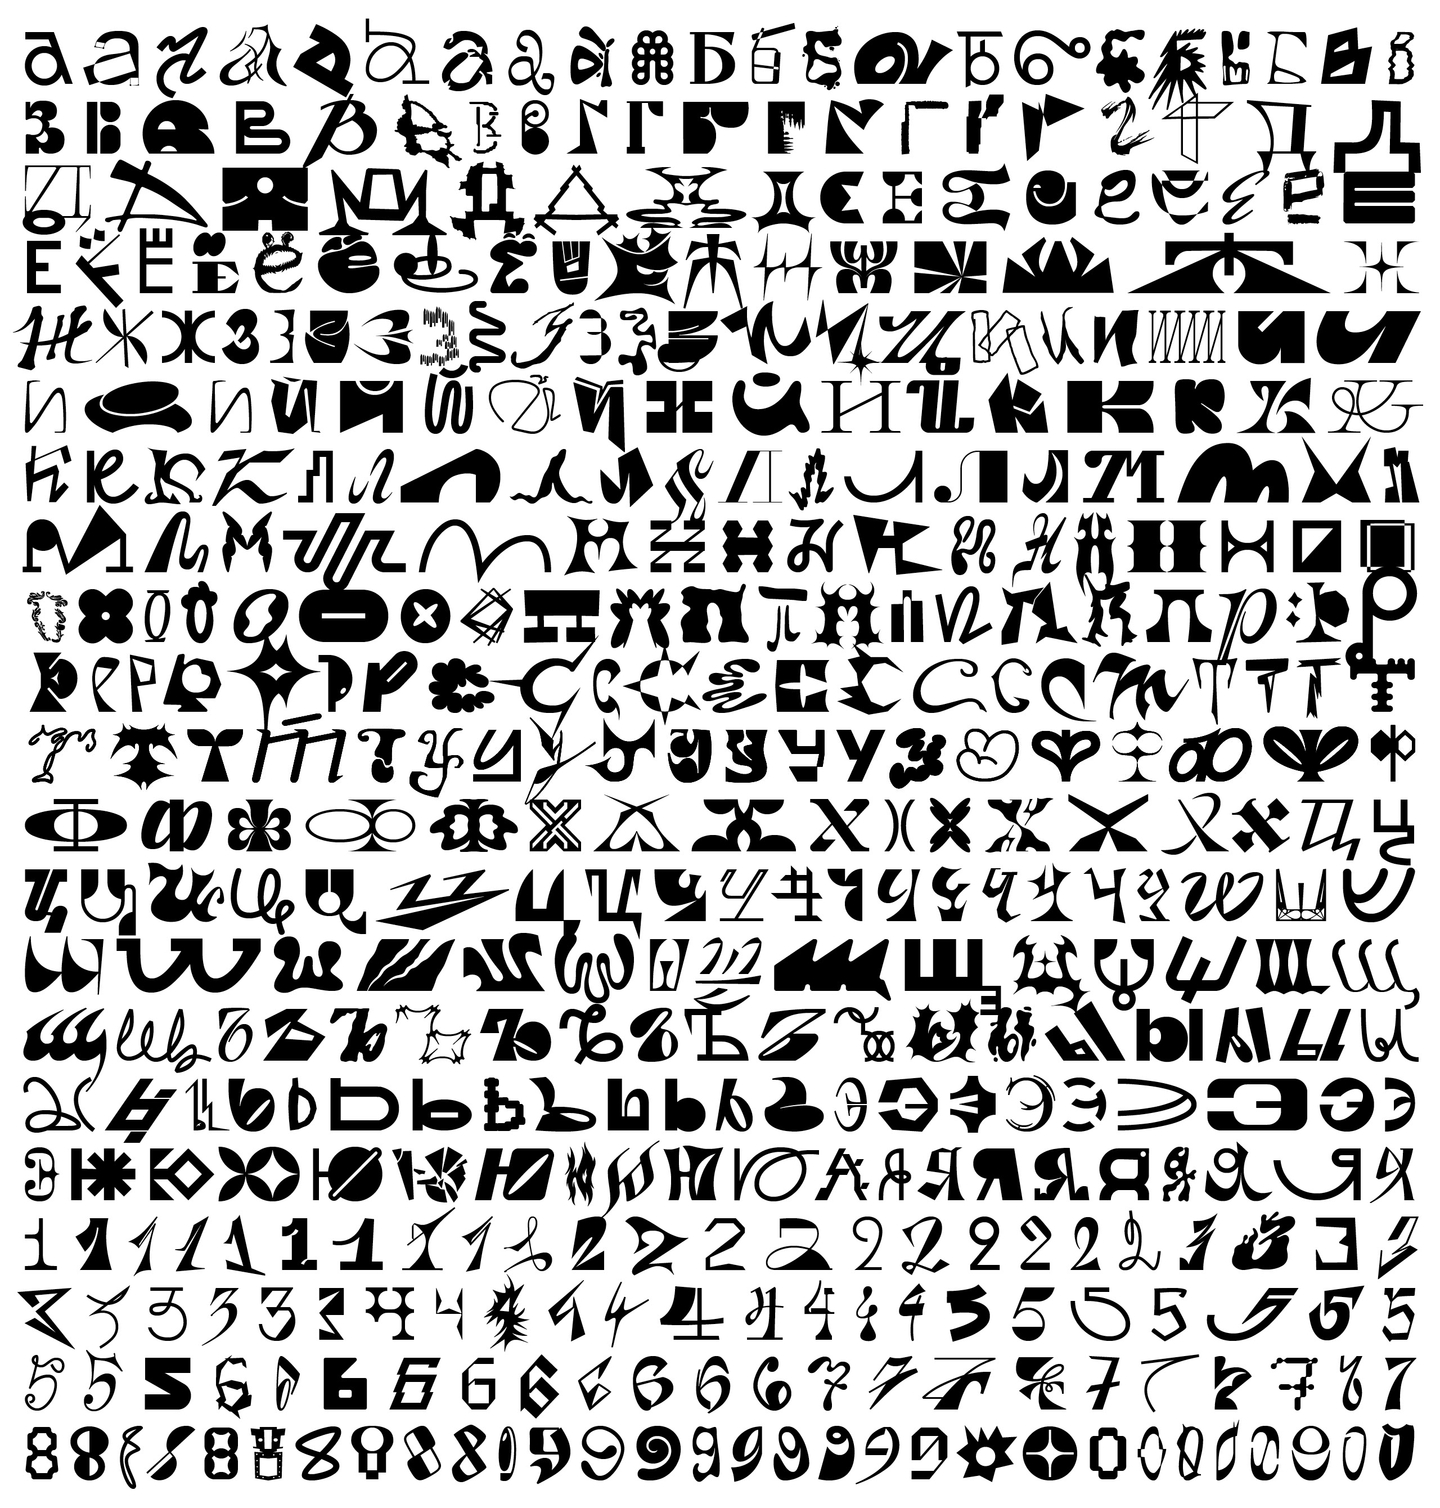 а а а а а а а а а А Б б Б б Б б Б Б Б Б Б Б
В В В В В В В В Г Г Г Г Г Г Г Г Г Г Д Д
Д Д Д Д Д Д Д Д Е Е Е Е Е Е Е Е Е
Е Ё Ё Ё ё ё ё ё ё ё Ж Ж Ж Ж Ж Ж Ж
Ж Ж Ж З З З З З З З З З З И И И И И И И И И
Й Й Й Й Й Й Й Й Й Й Й Й К К К К К
К К К К Л Л Л Л Л Л Л Л Л Л Л М М М М
М М М М М М Н Н Н Н Н Н Н Н Н О О
О О О О О О О О П П П П П П П П П П Р Р Р
Р Р Р Р Р Р Р С С С С С С С С С С Т Т Т Т
Т Т Т Т Т У У У У У У У У У Ф Ф Ф Ф Ф Ф
Ф Ф Ф Ф Ф Х Х Х Х Х Х Х Х Х Х Ц Ц
Ц Ц Ц Ц Ц Ц Ц Ц Ч Ч Ч Ч Ч Ч Ч Ч Ч Ч Ш Ш Ш
Ш Ш Ш Ш Ш Щ Щ Щ Щ Щ Щ Щ Щ Щ Щ
Щ Щ Ъ Ъ Ъ Ъ Ъ Ъ Ъ Ъ Ъ Ъ Ы Ы Ы Ы Ы Ы Ы
Ы Ь Ь Ь Ь Ь Ь Ь Ь Ь Ь Ь Ь Э Э Э Э Э Э Э Э Э
Э Ю Ю Ю Ю Ю Ю Ю Ю Ю Ю Я Я Я Я Я Я Я Я Я Я
1 1 1 1 1 1 1 1 1 1 2 2 2 2 2 2 2 2 2 2 3 3 3 3
3 3 3 3 3 3 4 4 4 4 4 4 4 4 4 4 5 5 5 5 5 5 5
5 5 5 6 6 6 6 6 6 6 6 6 6 7 7 7 7 7 7 7 7 7 7
8 8 8 8 8 8 8 8 8 8 9 9 9 9 9 9 9 9 9 9 0 0 0 0 0 0 0 0 0 0